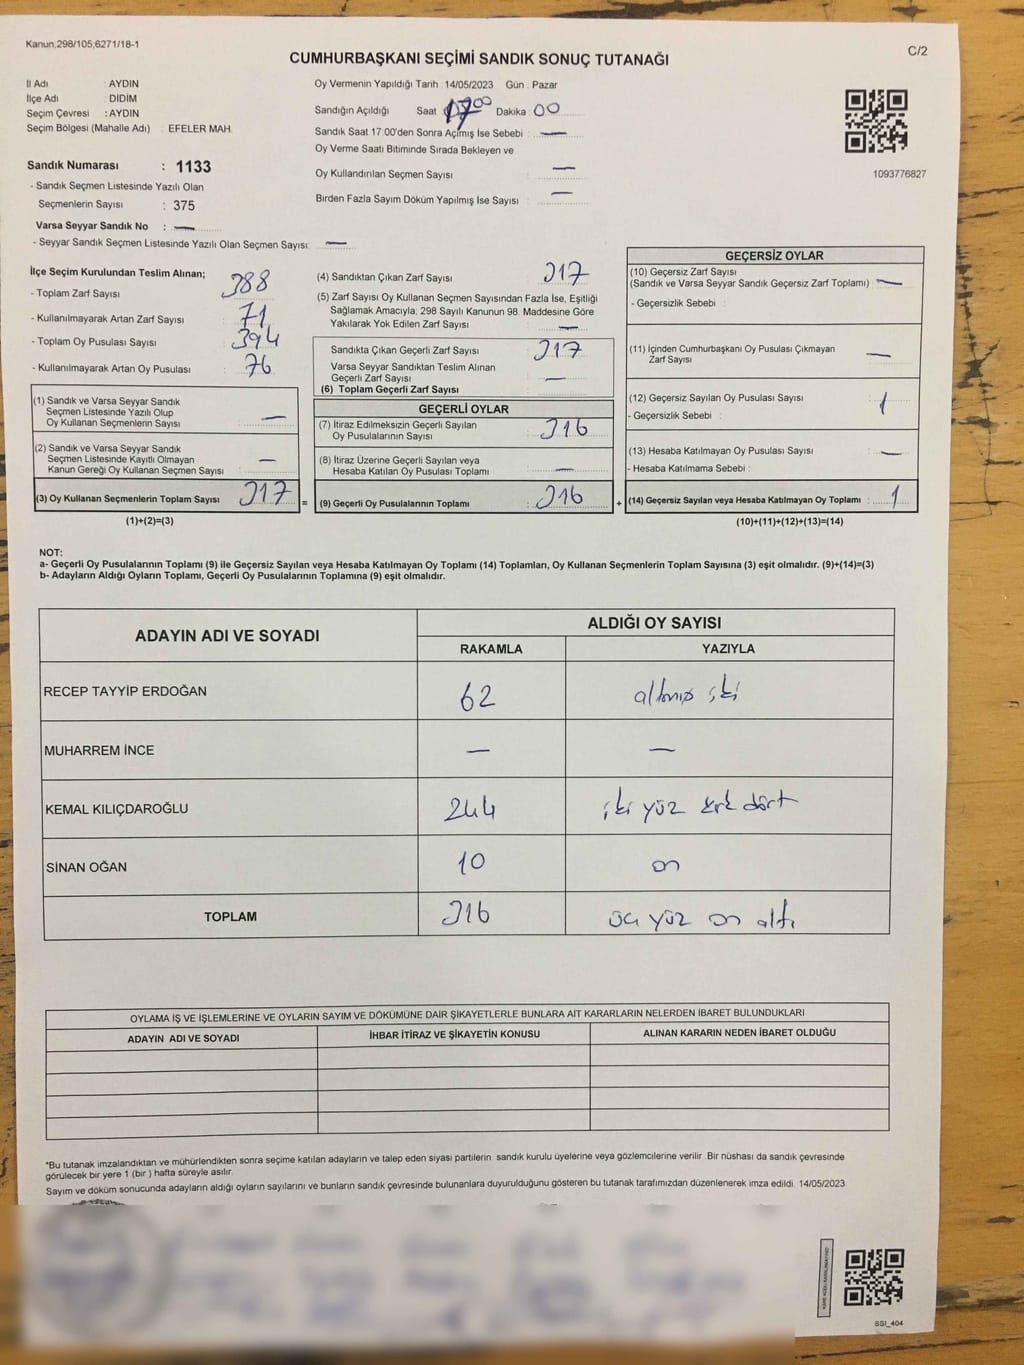 Kanun,298/105,6271/18-1
C/2
CUMHURBAŞKANI SEÇİMİ SANDIK SONUÇ TUTANAĞI
İl Adı : AYDIN
İlçe Adı : DİDİM
Seçim Çevresi : AYDIN
Seçim Bölgesi (Mahalle Adı) : EFELER MAH.
Oy Vermenin Yapıldığı Tarih : 14/05/2023 Gün : Pazar
Sandığın Açıldığı Saat 17 00 Dakika : 00
Sandık Saat 17:00'den Sonra Açmış İse Sebebi : —
Oy Verme Saati Bitiminde Sırada Bekleyen ve
Oy Kullandırılan Seçmen Sayısı : —
Birden Fazla Sayım Döküm Yapılmış İse Sayısı : —
1093776827
Sandık Numarası : 1133
- Sandık Seçmen Listesinde Yazılı Olan
Seçmenlerin Sayısı : 375
Varsa Seyyar Sandık No : —
- Seyyar Sandık Seçmen Listesinde Yazılı Olan Seçmen Sayısı: —
İlçe Seçim Kurulundan Teslim Alınan;
- Toplam Zarf Sayısı : 388
- Kullanılmayarak Artan Zarf Sayısı : 71
- Toplam Oy Pusulası Sayısı : 394
- Kullanılmayarak Artan Oy Pusulası : 76
(1) Sandık ve Varsa Seyyar Sandık
Seçmen Listesinde Yazılı Olup
Oy Kullanan Seçmenlerin Sayısı : —
(2) Sandık ve Varsa Seyyar Sandık
Seçmen Listesinde Kayıtlı Olmayan
Kanun Gereği Oy Kullanan Seçmen Sayısı : —
(3) Oy Kullanan Seçmenlerin Toplam Sayısı : 317
(1)+(2)=(3)
(4) Sandıktan Çıkan Zarf Sayısı : 317
(5) Zarf Sayısı Oy Kullanan Seçmen Sayısından Fazla İse, Eşitliği
Sağlamak Amacıyla; 298 Sayılı Kanunun 98. Maddesine Göre
Yakılarak Yok Edilen Zarf Sayısı : —
Sandıkta Çıkan Geçerli Zarf Sayısı : 317
Varsa Seyyar Sandıktan Teslim Alınan
Geçerli Zarf Sayısı : —
(6) Toplam Geçerli Zarf Sayısı
GEÇERLİ OYLAR
(7) İtiraz Edilmeksizin Geçerli Sayılan
Oy Pusulalarının Sayısı : 316
(8) İtiraz Üzerine Geçerli Sayılan veya
Hesaba Katılan Oy Pusulası Toplamı : —
= (9) Geçerli Oy Pusulalarının Toplamı : 316
GEÇERSİZ OYLAR
(10) Geçersiz Zarf Sayısı
(Sandık ve Varsa Seyyar Sandık Geçersiz Zarf Toplamı) : —
- Geçersizlik Sebebi :
(11) İçinden Cumhurbaşkanı Oy Pusulası Çıkmayan
Zarf Sayısı : —
(12) Geçersiz Sayılan Oy Pusulası Sayısı : 1
- Geçersizlik Sebebi :
(13) Hesaba Katılmayan Oy Pusulası Sayısı : —
- Hesaba Katılmama Sebebi :
+ (14) Geçersiz Sayılan veya Hesaba Katılmayan Oy Toplamı : 1
(10)+(11)+(12)+(13)=(14)
NOT:
a- Geçerli Oy Pusulalarının Toplamı (9) ile Geçersiz Sayılan veya Hesaba Katılmayan Oy Toplamı (14) Toplamları, Oy Kullanan Seçmenlerin Toplam Sayısına (3) eşit olmalıdır. (9)+(14)=(3)
b- Adayların Aldığı Oyların Toplamı, Geçerli Oy Pusulalarının Toplamına (9) eşit olmalıdır.
ADAYIN ADI VE SOYADI ALDIĞI OY SAYISI
RAKAMLA YAZIYLA
RECEP TAYYİP ERDOĞAN 62 altmış iki
MUHARREM İNCE — —
KEMAL KILIÇDAROĞLU 244 iki yüz kırk dört
SİNAN OĞAN 10 on
TOPLAM 316 üç yüz on altı
OYLAMA İŞ VE İŞLEMLERİNE VE OYLARIN SAYIM VE DÖKÜMÜNE DAİR ŞİKAYETLERLE BUNLARA AİT KARARLARIN NELERDEN İBARET BULUNDUKLARI
ADAYIN ADI VE SOYADI İHBAR İTİRAZ VE ŞİKAYETİN KONUSU ALINAN KARARIN NEDEN İBARET OLDUĞU
*Bu tutanak imzalandıktan ve mühürlendikten sonra seçime katılan adayların ve talep eden siyasi partilerin sandık kurulu üyelerine veya gözlemcilerine verilir. Bir nüshası da sandık çevresinde
görülecek bir yere 1 (bir ) hafta süreyle asılır.
Sayım ve döküm sonucunda adayların aldığı oyların sayılarını ve bunların sandık çevresinde bulunanlara duyurulduğunu gösteren bu tutanak tarafımızdan düzenlenerek imza edildi. 14/05/2023
SSI_404